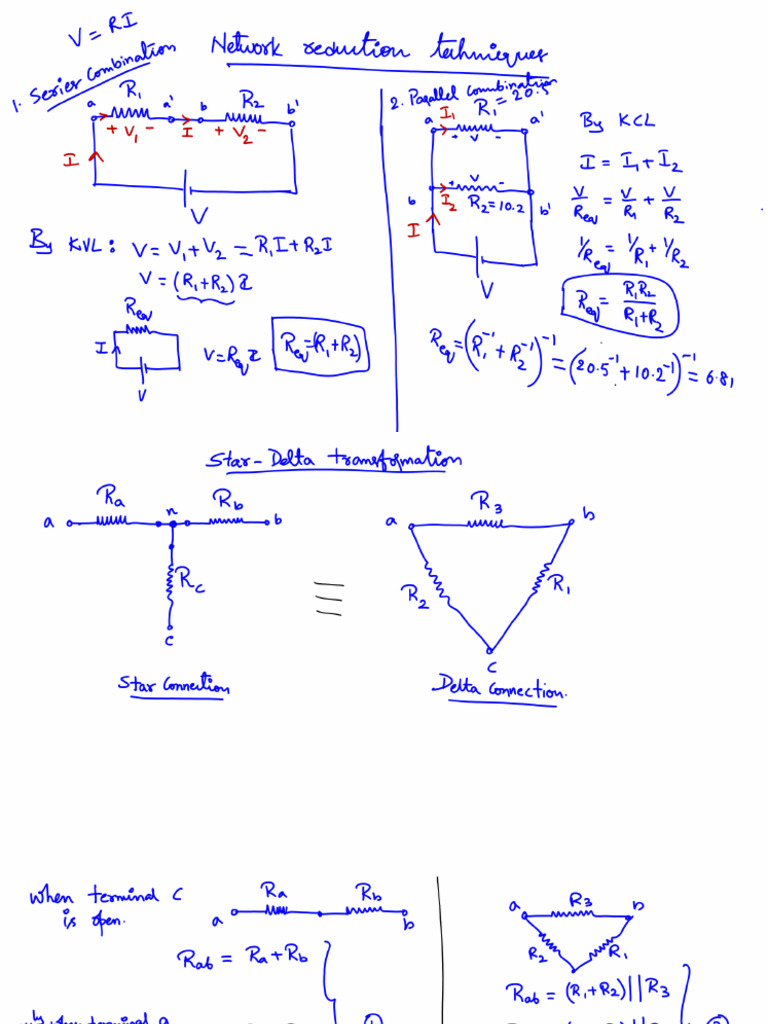 V = RI
Network reduction techniques
1. Series Combination
a R1 a' b R2 b'
+ V1 - I + V2 -
I
V
By KVL: V = V1 + V2 = R1I + R2I
V = (R1 + R2) I
Req
I
V
V = Req I
Req = (R1 + R2)
2. Parallel Combination
R1 = 20.5
a I1 a'
+ V -
+ V -
b I2 R2 = 10.2 b'
I
V
By KCL
I = I1 + I2
V/Req = V/R1 + V/R2
1/Req = 1/R1 + 1/R2
Req = R1R2/R1+R2
Req = (R1^-1 + R2^-1)^-1 = (20.5^-1 + 10.2^-1)^-1 = 6.81
Star-Delta transformation
Ra n Rb
a b
Rc
c
Star Connection
≡
R3
a b
R2 R1
C
Delta Connection.
When terminal C
is open.
Ra Rb
a b
Rab = Ra + Rb
R3
a b
R2 R1
Rab = (R1 + R2) || R3